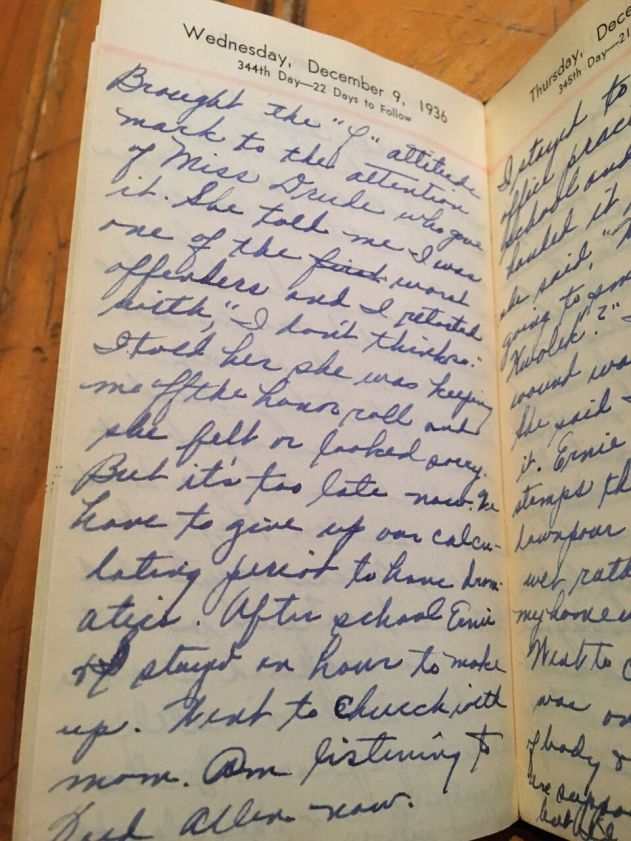 Wednesday, December 9, 1936
344th Day—22 Days to Follow
Brought the "G" attitude
mark to the attention
of Miss Drude who gave
it. She told me I was
one of the first worst
offenders and I retorted
with, "I don't think so."
I told her she was keeping
me off the honor roll and
she felt or looked sorry.
But it's too late now. We
have to give up our calcu-
lating period to have dram-
atics. After school Ernie
& I stayed an hour to make
up. Went to church with
mom. Am listening to
Fred Allen now.
Thursday, Dece
345th Day—21
I stayed to
office prac
school and
handed it
she said, "
going to sm
Kwolek?"
wound wa
She said
it. Ernie
stamps th
downpour
wet rath
my home w
Went to C
was on
of body &
are suppo
but